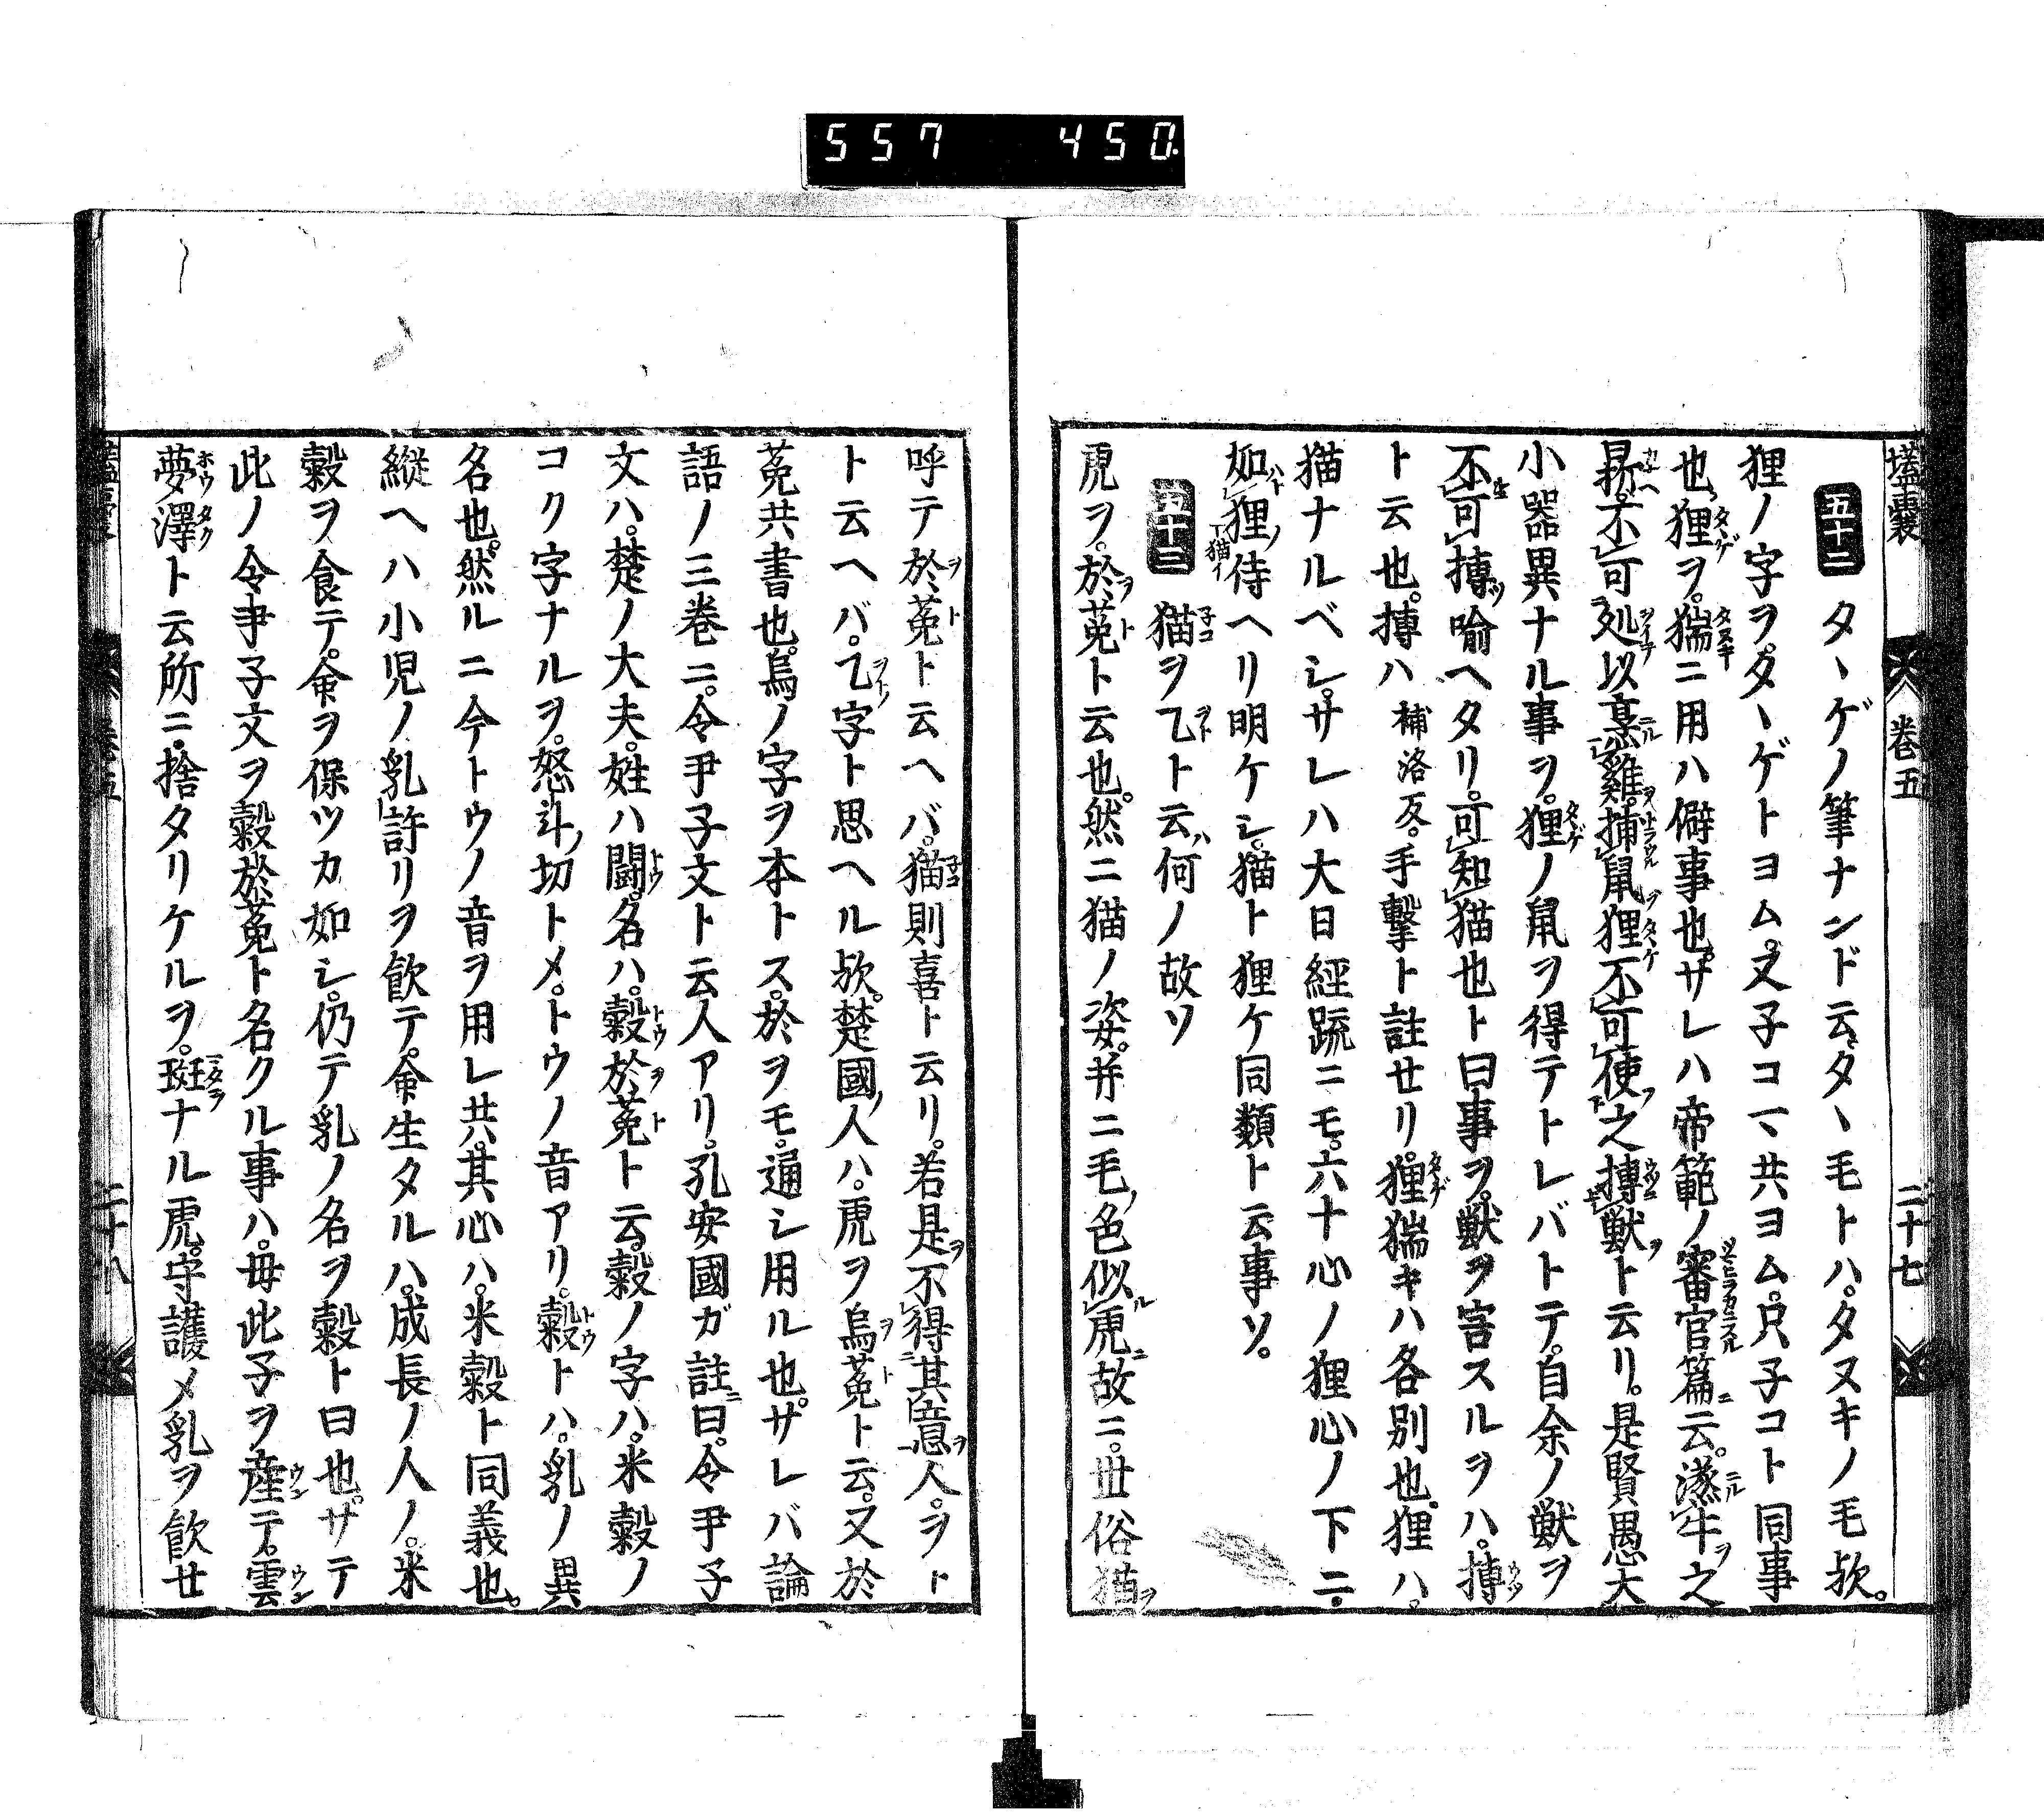 557 450
壒囊 巻五 二十七
五十二 タヽゲノ筆ナンド云タヽ毛トハ。タヌキノ毛歟。
狸ノ字ヲ。タヽゲトヨム。又子コマ共ヨム。只子コト同事
也。狸ヲ。猯ニ用ハ僻事也。サレハ帝範ノ審官篇ニ云。牛之
鼎。不可処以烹雞。捕鼠狸不可使之搏獣ト云リ。是賢愚大
小器異ナル事ヲ。狸ノ鼠ヲ得テトレバトテ。自余ノ獣ヲ
不可搏喩ヘタリ。可知猫也ト曰事ヲ。獣ヲ害スルヲハ。搏
ト云也。搏ハ補洛反。手撃ト註せリ。狸猯キハ各別也。狸ハ。
猫ナルベシ。サレハ大日經䟽ニモ。六十心ノ狸心ノ下ニ。
如狸侍ヘリ明ケシ。猫ト狸ケ同類ト云事ソ。
五十三 猫ヲ乙ト云ハ何ノ故ソ
虎ヲ。於菟ト云也。然ニ猫ノ姿。并ニ毛ノ色似虎ニ故ニ。世俗猫ヲ
呼テ於菟ト云ヘバ。猫則喜ト云リ。若是ヲ不得其意人。ヲト
ト云ヘバ。乙字ト思ヘル歟。楚國ノ人ハ。虎ヲ烏菟ト云。又於
菟共書也。烏ノ字ヲ本トス。於ヲモ。通シ用ル也。サレバ論
語ノ三巻ニ。令尹子文ト云人アリ。孔安國ガ註ニ曰。令尹子
文ハ。楚ノ大夫。姓ハ闘。名ハ。穀於菟ト云。穀ノ字ハ。米穀ノ
コク字ナルヲ。怒斗ノ切トメ。トウノ音アリ。穀トハ。乳ノ異
名也。然ルニ今トウノ音ヲ用レ共。其心ハ。米穀ト同義也。
縦ヘハ小児ノ乳許リヲ飲テ。命生タルハ。成長ノ人ノ。米
穀ヲ食テ。命ヲ保ツカ如シ。仍テ乳ノ名ヲ穀ト曰也。サテ
此ノ令尹子文ヲ穀於菟ト名クル事ハ。毋此子ヲ産テ。雲
夢澤ト云所ニ。捨タリケルヲ。斑ナル虎。守護メ乳ヲ飲せ
巻五 二十八